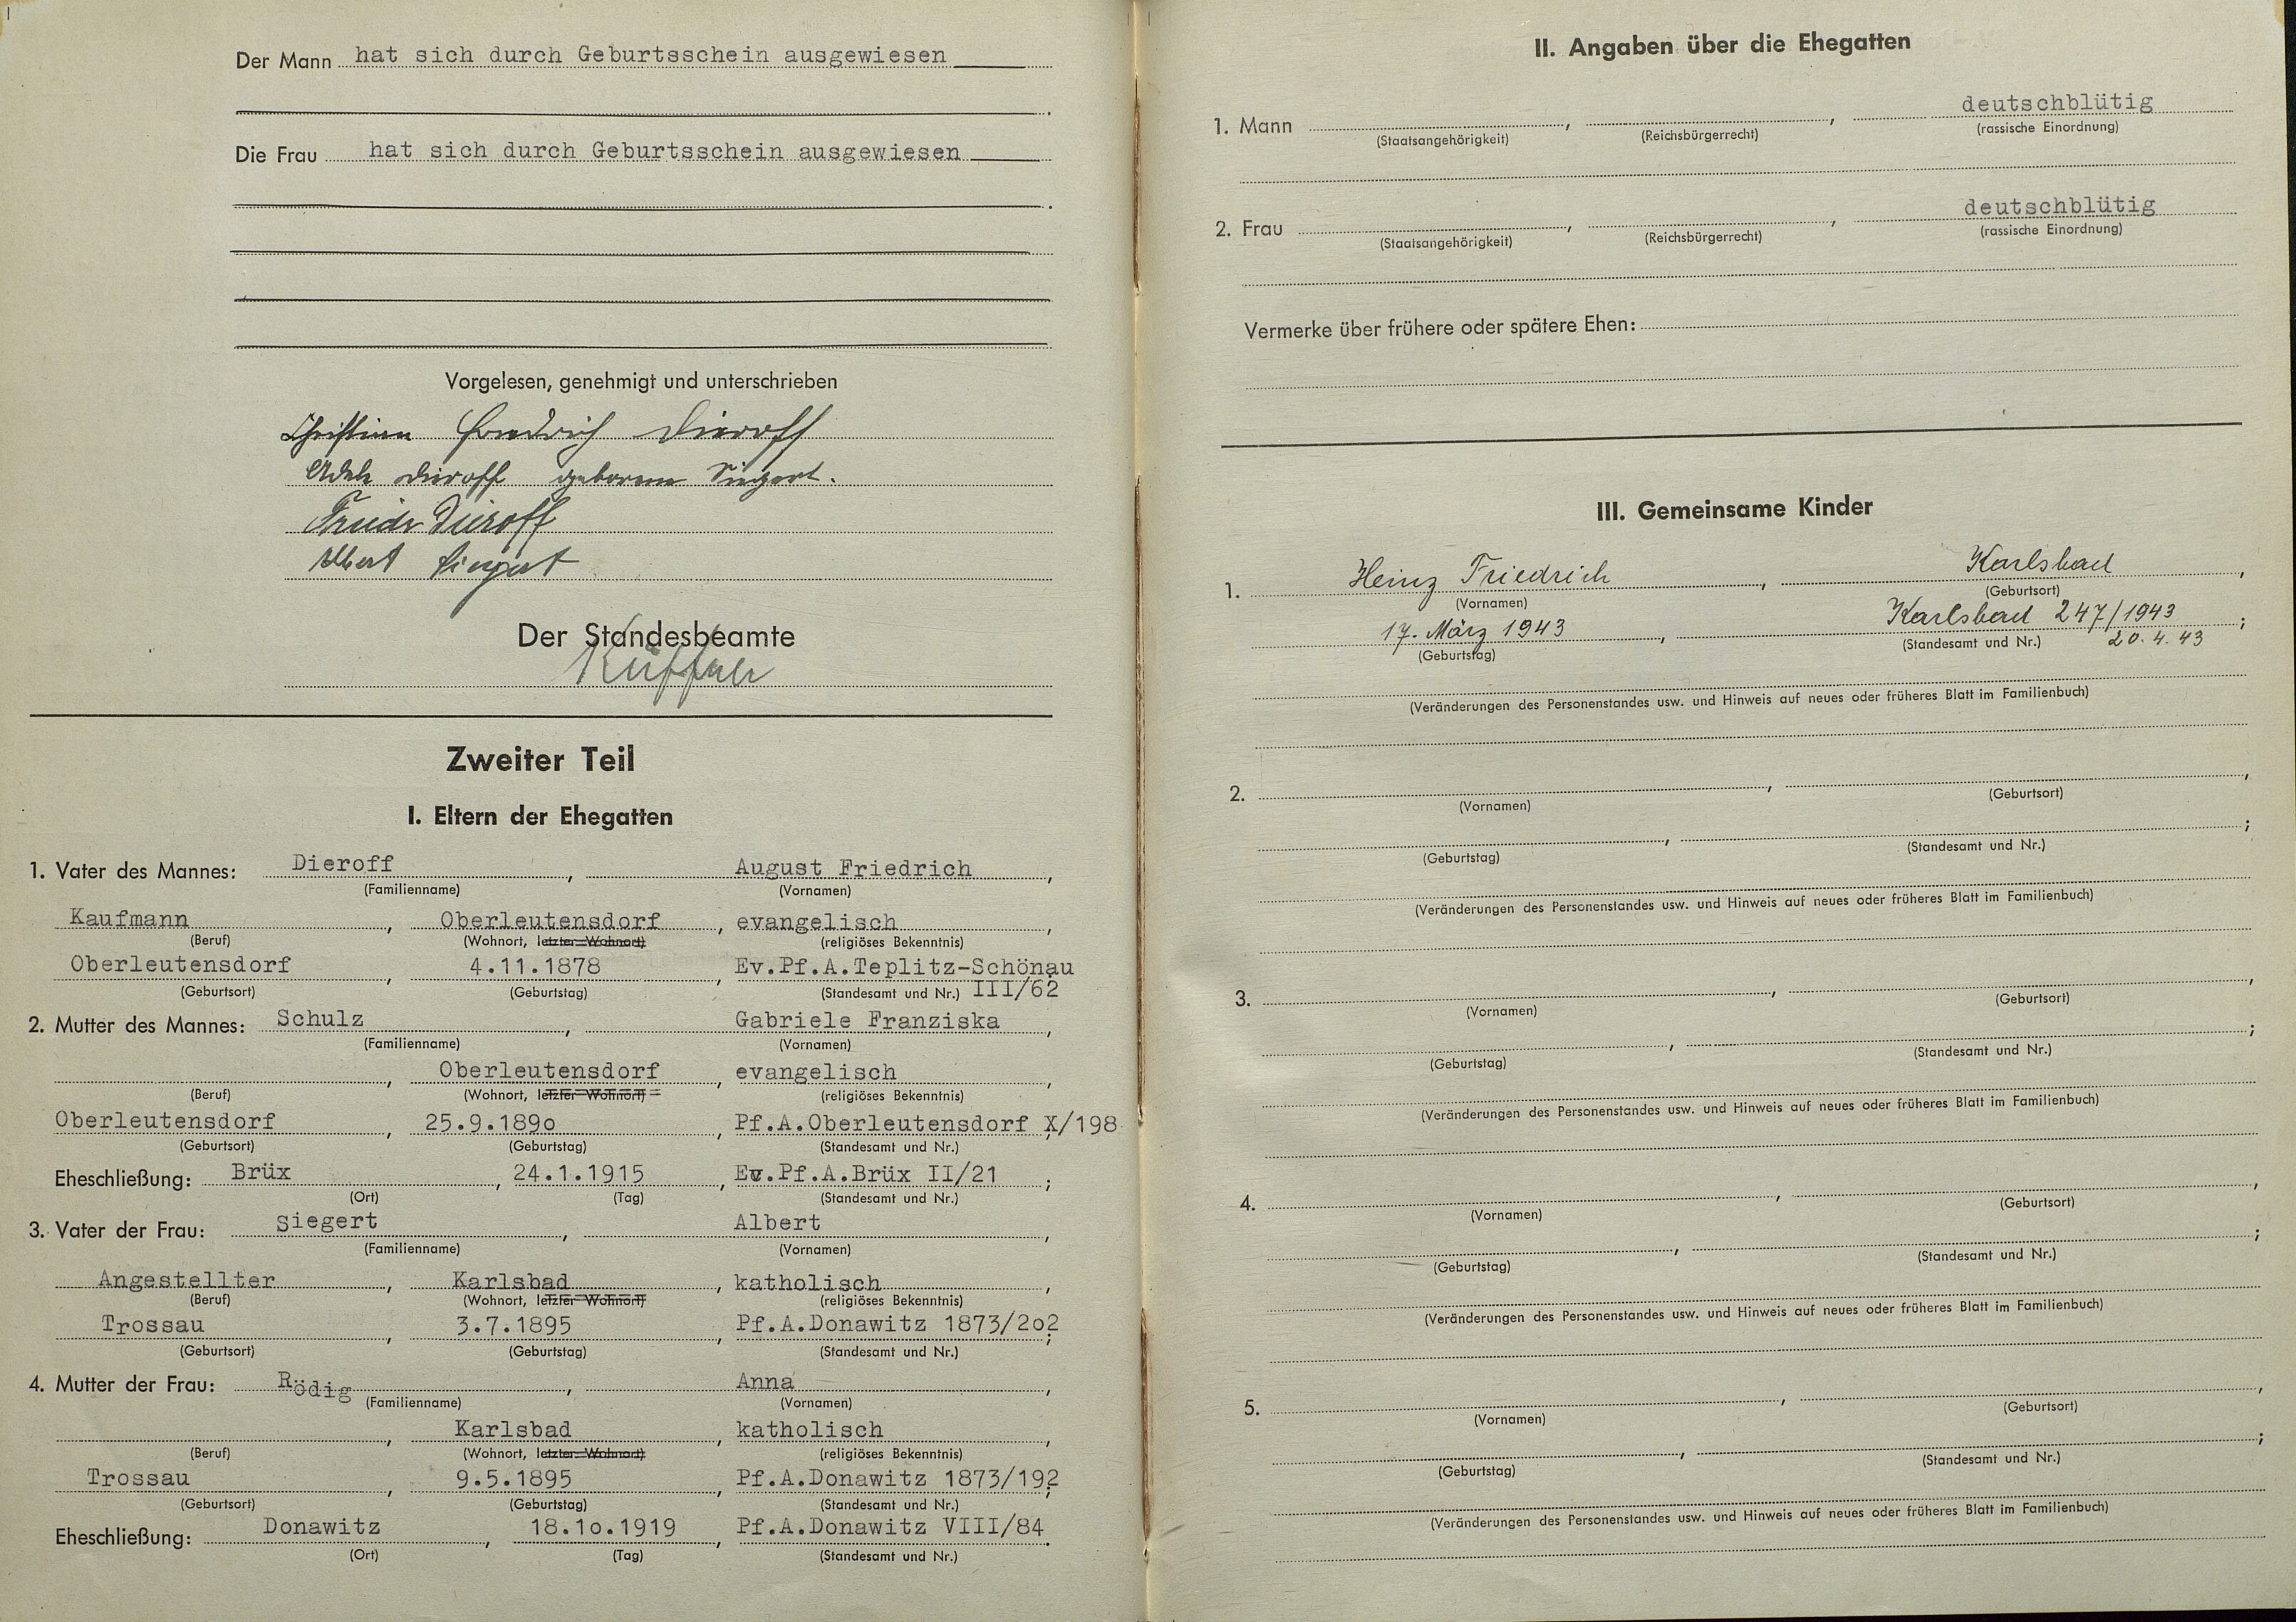 Der Mann hat sich durch Geburtsschein ausgewiesen
Die Frau hat sich durch Geburtsschein ausgewiesen
Vorgelesen, genehmigt und unterschrieben
Christian Friedrich Dieroff
Adele Dieroff geborene Siegert.
Friedr Dieroff
Albert Siegert
Der Standesbeamte
Zweiter Teil
I. Eltern der Ehegatten
1. Vater des Mannes: Dieroff, August Friedrich,
(Familienname) (Vornamen)
Kaufmann, Oberleutensdorf, evangelisch,
(Beruf) (Wohnort, letzter Wohnort) (religiöses Bekenntnis)
Oberleutensdorf, 4.11.1878, Ev.Pf.A.Teplitz-Schönau;
(Geburtsort) (Geburtstag) (Standesamt und Nr.) III/62
2. Mutter des Mannes: Schulz, Gabriele Franziska,
(Familienname) (Vornamen)
, Oberleutensdorf, evangelisch,
(Beruf) (Wohnort, letzter Wohnort) (religiöses Bekenntnis)
Oberleutensdorf, 25.9.189o, Pf.A.Oberleutensdorf X/198;
(Geburtsort) (Geburtstag) (Standesamt und Nr.)
Eheschließung: Brüx, 24.1.1915, Ev.Pf.A.Brüx II/21;
(Ort) (Tag) (Standesamt und Nr.)
3. Vater der Frau: Siegert, Albert,
(Familienname) (Vornamen)
Angestellter, Karlsbad, katholisch,
(Beruf) (Wohnort, letzter Wohnort) (religiöses Bekenntnis)
Trossau, 3.7.1895, Pf.A.Donawitz 1873/2o2;
(Geburtsort) (Geburtstag) (Standesamt und Nr.)
4. Mutter der Frau: Rödig, Anna,
(Familienname) (Vornamen)
, Karlsbad, katholisch,
(Beruf) (Wohnort, letzter Wohnort) (religiöses Bekenntnis)
Trossau, 9.5.1895, Pf.A.Donawitz 1873/192;
(Geburtsort) (Geburtstag) (Standesamt und Nr.)
Eheschließung: Donawitz, 18.1o.1919, Pf.A.Donawitz VIII/84.
(Ort) (Tag) (Standesamt und Nr.)
II. Angaben über die Ehegatten
1. Mann , , deutschblütig
(Staatsangehörigkeit) (Reichsbürgerrecht) (rassische Einordnung)
2. Frau , , deutschblütig
(Staatsangehörigkeit) (Reichsbürgerrecht) (rassische Einordnung)
Vermerke über frühere oder spätere Ehen:
III. Gemeinsame Kinder
1. Heinz Friedrich, Karlsbad,
(Vornamen) (Geburtsort)
17. März 1943, Karlsbad 247/1943;
(Geburtstag) (Standesamt und Nr.) 20.4.43
(Veränderungen des Personenstandes usw. und Hinweis auf neues oder früheres Blatt im Familienbuch)
2. , ,
(Vornamen) (Geburtsort)
, ;
(Geburtstag) (Standesamt und Nr.)
(Veränderungen des Personenstandes usw. und Hinweis auf neues oder früheres Blatt im Familienbuch)
3. , ,
(Vornamen) (Geburtsort)
, ;
(Geburtstag) (Standesamt und Nr.)
(Veränderungen des Personenstandes usw. und Hinweis auf neues oder früheres Blatt im Familienbuch)
4. , ,
(Vornamen) (Geburtsort)
, ;
(Geburtstag) (Standesamt und Nr.)
(Veränderungen des Personenstandes usw. und Hinweis auf neues oder früheres Blatt im Familienbuch)
5. , ,
(Vornamen) (Geburtsort)
, ;
(Geburtstag) (Standesamt und Nr.)
(Veränderungen des Personenstandes usw. und Hinweis auf neues oder früheres Blatt im Familienbuch)